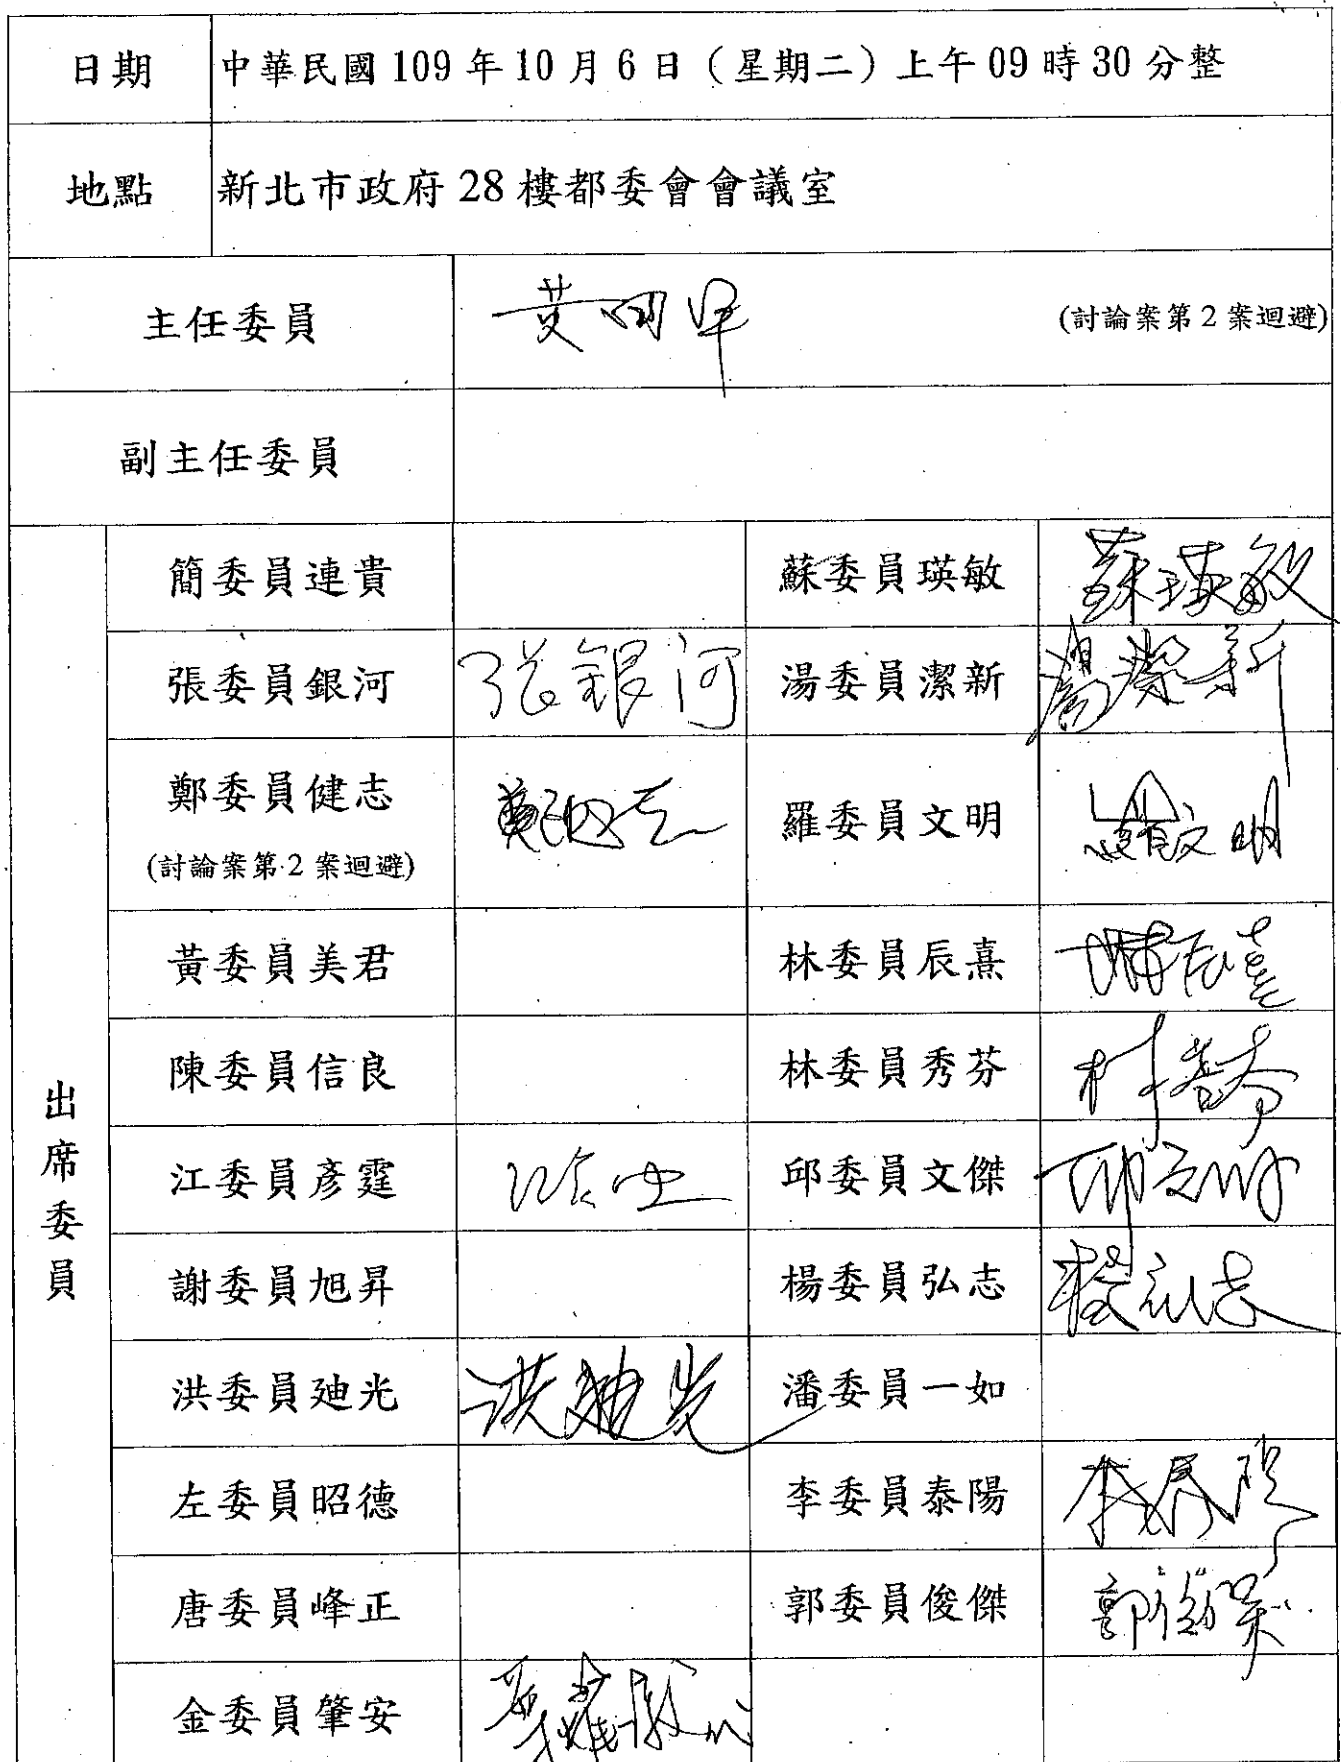 日期 中華民國 109 年 10 月 6 日（星期二）上午 09 時 30 分整
地點 新北市政府 28 樓都委會會議室
主任委員 (討論案第 2 案迴避)
副主任委員
出席委員
簡委員連貴 蘇委員瑛敏 蘇瑛敏
張委員銀河 張銀河 湯委員潔新 湯潔新
鄭委員健志 羅委員文明 羅文明
(討論案第 2 案迴避)
黃委員美君 林委員辰熹 林辰熹
陳委員信良 林委員秀芬 林秀芬
江委員彥霆 邱委員文傑
謝委員旭昇 楊委員弘志 楊弘志
洪委員廸光 洪廸光 潘委員一如
左委員昭德 李委員泰陽 李泰陽
唐委員峰正 郭委員俊傑 郭俊傑
金委員肇安